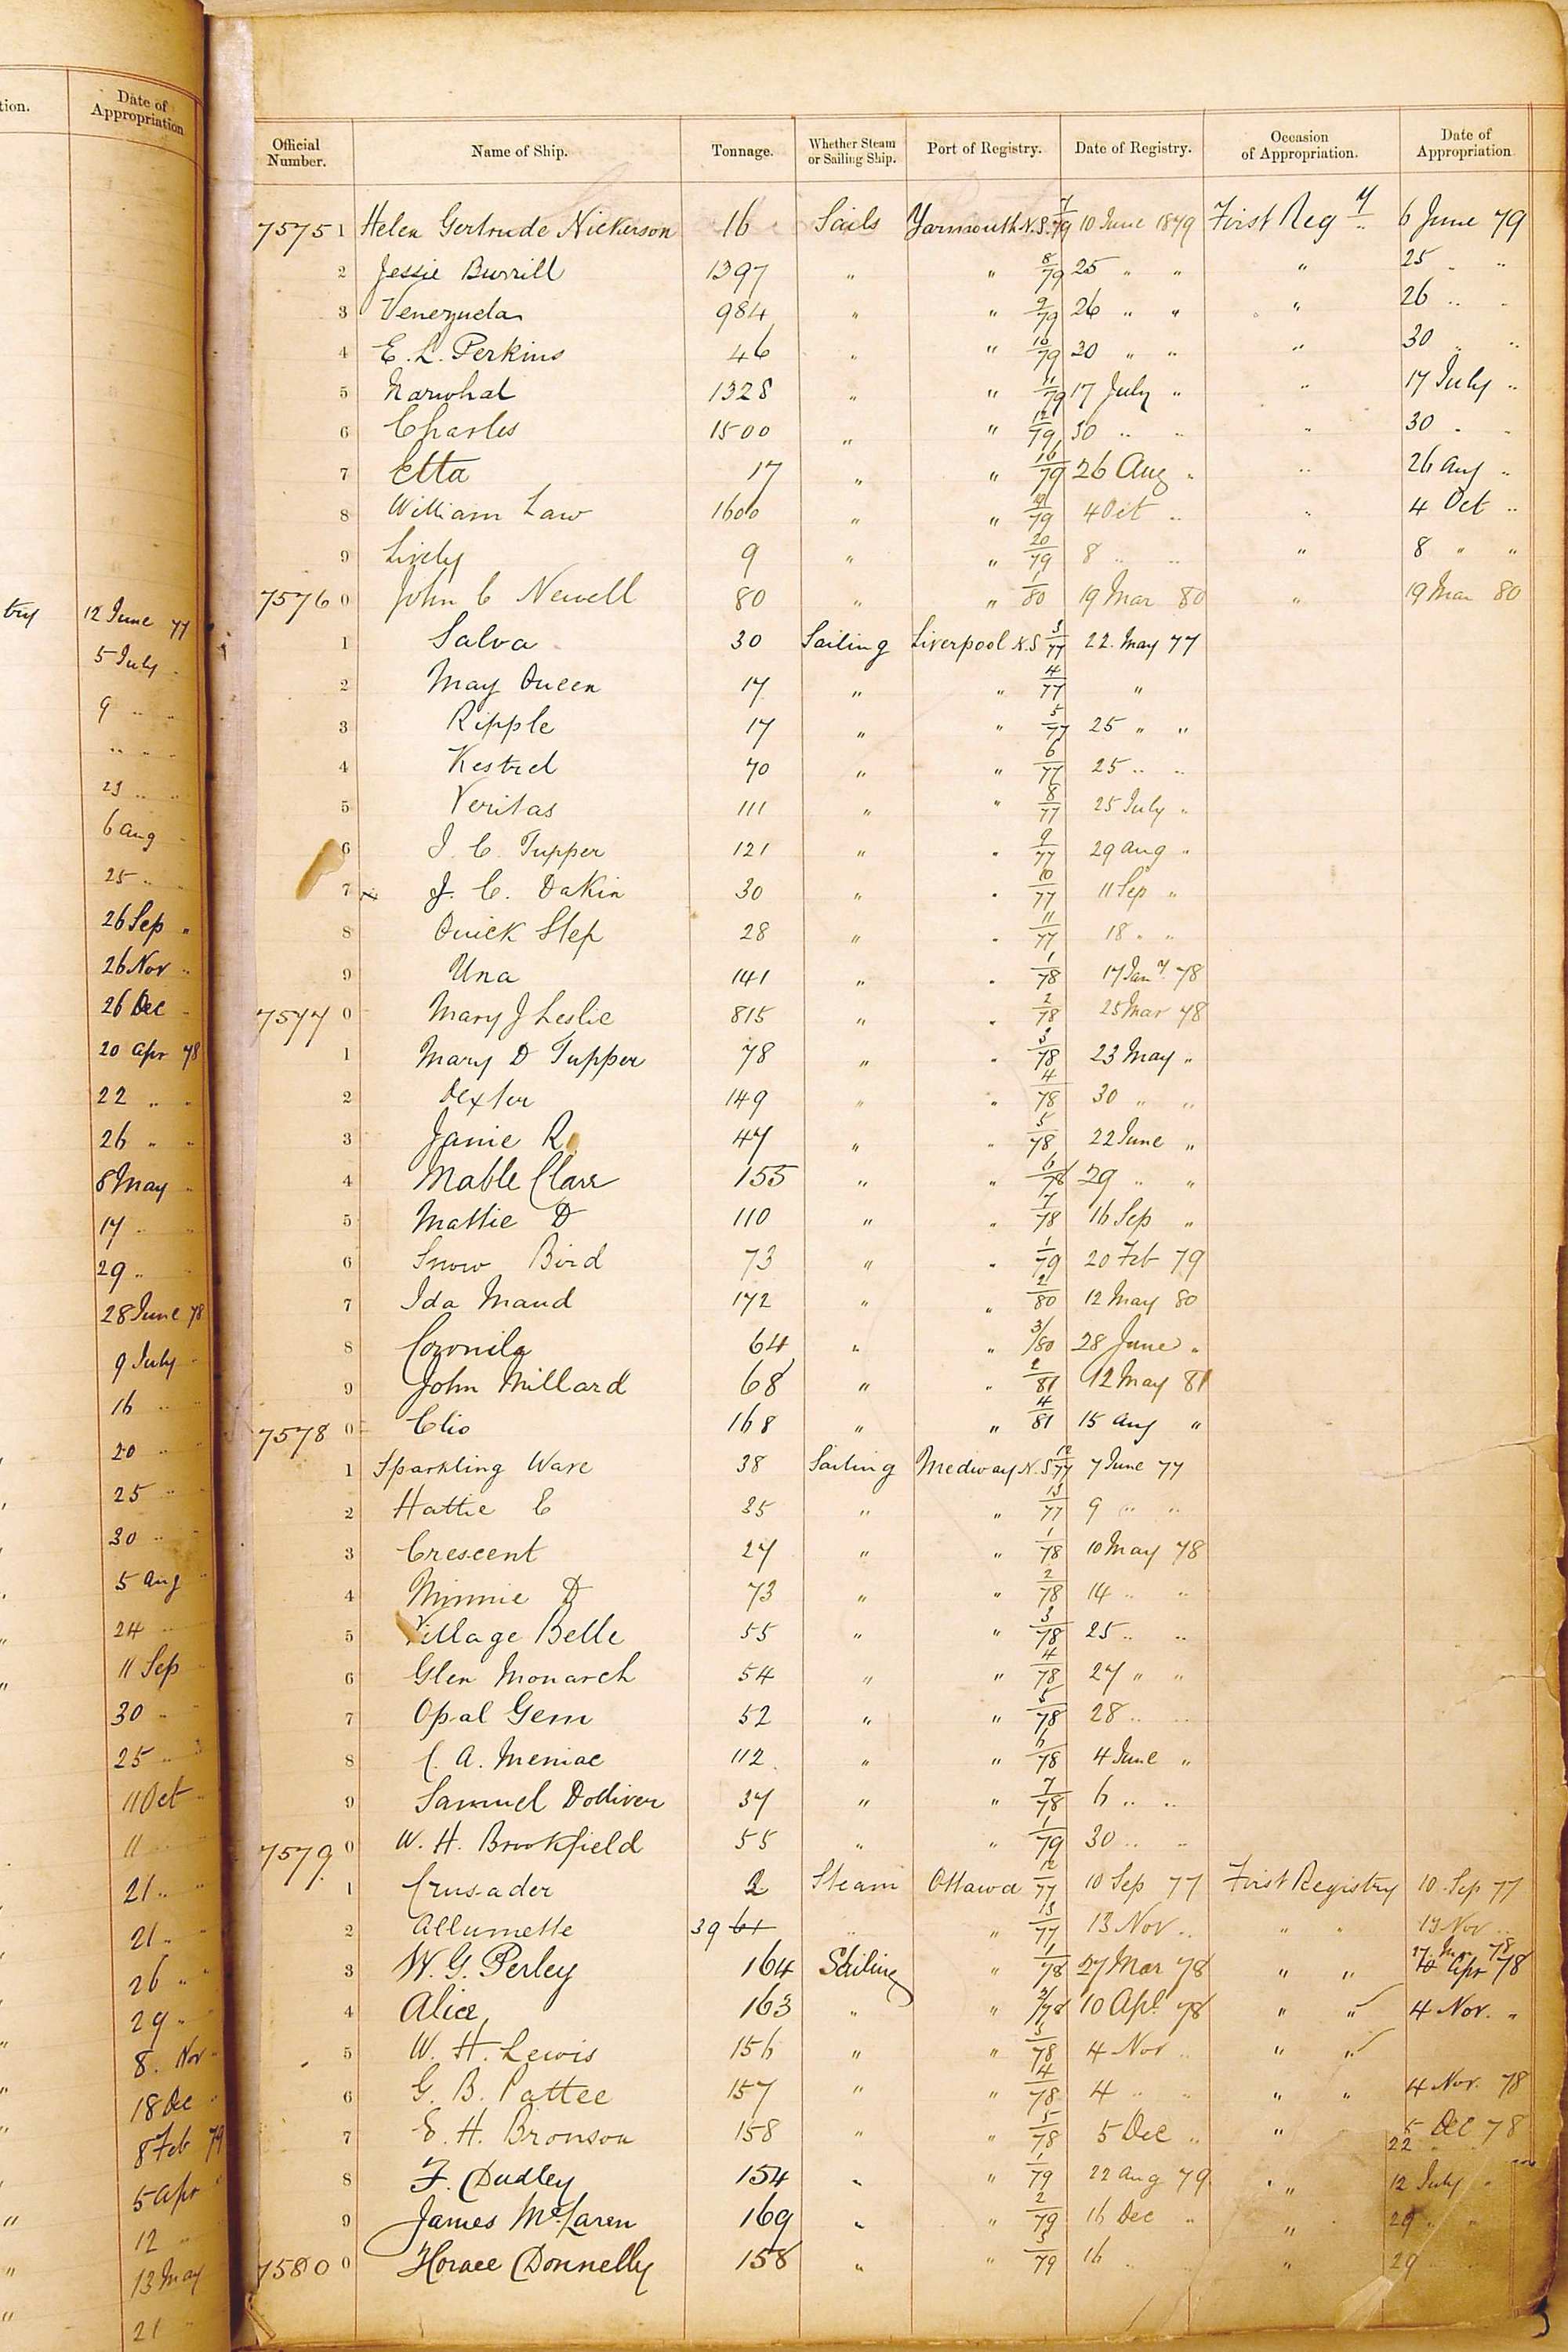 tion.
Date of Appropriation
try 12 June 77
5 July "
9 " "
" " "
23 " "
6 Aug "
25 " "
26 Sep "
26 Nov "
26 Dec "
20 Apr 78
22 " "
26 " "
8 May "
17 " "
29 " "
28 June 78
9 July "
16 " "
20 " "
25 " "
30 " "
5 Aug "
24 " "
11 Sep "
30 " "
25 " "
11 Oct "
11 " "
21 " "
21 " "
26 " "
29 " "
8. Nov "
18 Dec "
8 Feb 79
5 Apr "
12 " "
13 May
21 "
Official Number. Name of Ship. Tonnage. Whether Steam or Sailing Ship. Port of Registry. Date of Registry. Occasion of Appropriation. Date of Appropriation
7575 1 Helen Gertrude Nickerson 16 Sails Yarmouth N.S. 7/79 10 June 1879 First Regy 6 June 79
2 Jessie Burrill 1397 " " 8/79 25 " " " 25 " "
3 Venezuela 984 " " 9/79 26 " " " 26 " "
4 E. L. Perkins 46 " " 10/79 30 " " " 30 " "
5 Narwhal 1328 " " 11/79 17 July " " 17 July "
6 Charles 1500 " " 12/79 30 " " " 30 " "
7 Etta 17 " " 16/79 26 Aug " " 26 Aug "
8 William Law 1600 " " /79 4 Oct " " 4 Oct "
9 Lively 9 " " 20/79 8 " " " 8 " "
7576 0 John C Newell 80 " " 1/80 19 Mar 80 " 19 Mar 80
1 Salva 30 Sailing Liverpool N.S 3/77 22 May 77
2 May Queen 17 " " 4/77 "
3 Ripple 17 " " 5/77 25 " "
4 Kestrel 70 " " 6/77 25 " "
5 Veritas 111 " " 8/77 25 July "
6 J. C. Tupper 121 " " 9/77 29 Aug "
7 J. C. Dakin 30 " " 10/77 11 Sep "
8 Quick Step 28 " " 11/77 18 " "
9 Una 141 " " 1/78 17 Jany 78
7577 0 Mary J Leslie 815 " " 2/78 25 Mar 78
1 Mary D Tupper 78 " " 3/78 23 May "
2 Dexter 149 " " 4/78 30 " "
3 Janie R. 47 " " 5/78 22 June "
4 Mable Clare 155 " " 6/78 29 " "
5 Mattie D 110 " " 7/78 16 Sep "
6 Snow Bird 73 " " 1/79 20 Feb 79
7 Ida Maud 172 " " 2/80 12 May 80
8 Coronila 64 " " 3/80 28 June "
9 John Millard 68 " " 2/81 12 May 81
7578 0 Clio 168 " " 4/81 15 Aug "
1 Sparkling Wave 38 Sailing Medway N.S 12/77 7 June 77
2 Hattie E 35 " " 13/77 9 " "
3 Crescent 27 " " 1/78 10 May 78
4 Minnie D 73 " " 2/78 14 " "
5 Village Belle 55 " " 3/78 25 " "
6 Glen Monarch 54 " " 4/78 27 " "
7 Opal Gem 52 " " 5/78 28 " "
8 C. A. Meniac 112 " " 6/78 4 June "
9 Samuel Dolliver 37 " " 7/78 6 " "
7579 0 W. H. Brookfield 55 " " 1/79 30 " "
1 Crusader 2 Steam Ottawa 12/77 10 Sep 77 First Registry 10 Sep 77
2 Allumette 39 61 " " 13/77 13 Nov " " " 13 Nov "
3 W. G. Perley 164 Sailing " 1/78 27 Mar 78 " " 27 Mar 78 Apr 78
4 Alice 163 " " 2/78 10 Apl 78 " " 4 Nov. "
5 W. H. Lewis 156 " " 3/78 4 Nov " " "
6 G. B. Pattee 157 " " 4/78 4 " " " " 4 Nov. 78
7 E. H. Bronson 158 " " 5/78 5 Dec " " 5 Dec 78
22 "
8 F. Dudley 154 " " 1/79 22 Aug 79 " " 12 July "
9 James McLaren 169 " " 2/79 16 Dec " " 29 "
7580 0 Horace Donnelly 158 " " 3/79 16 " " 29